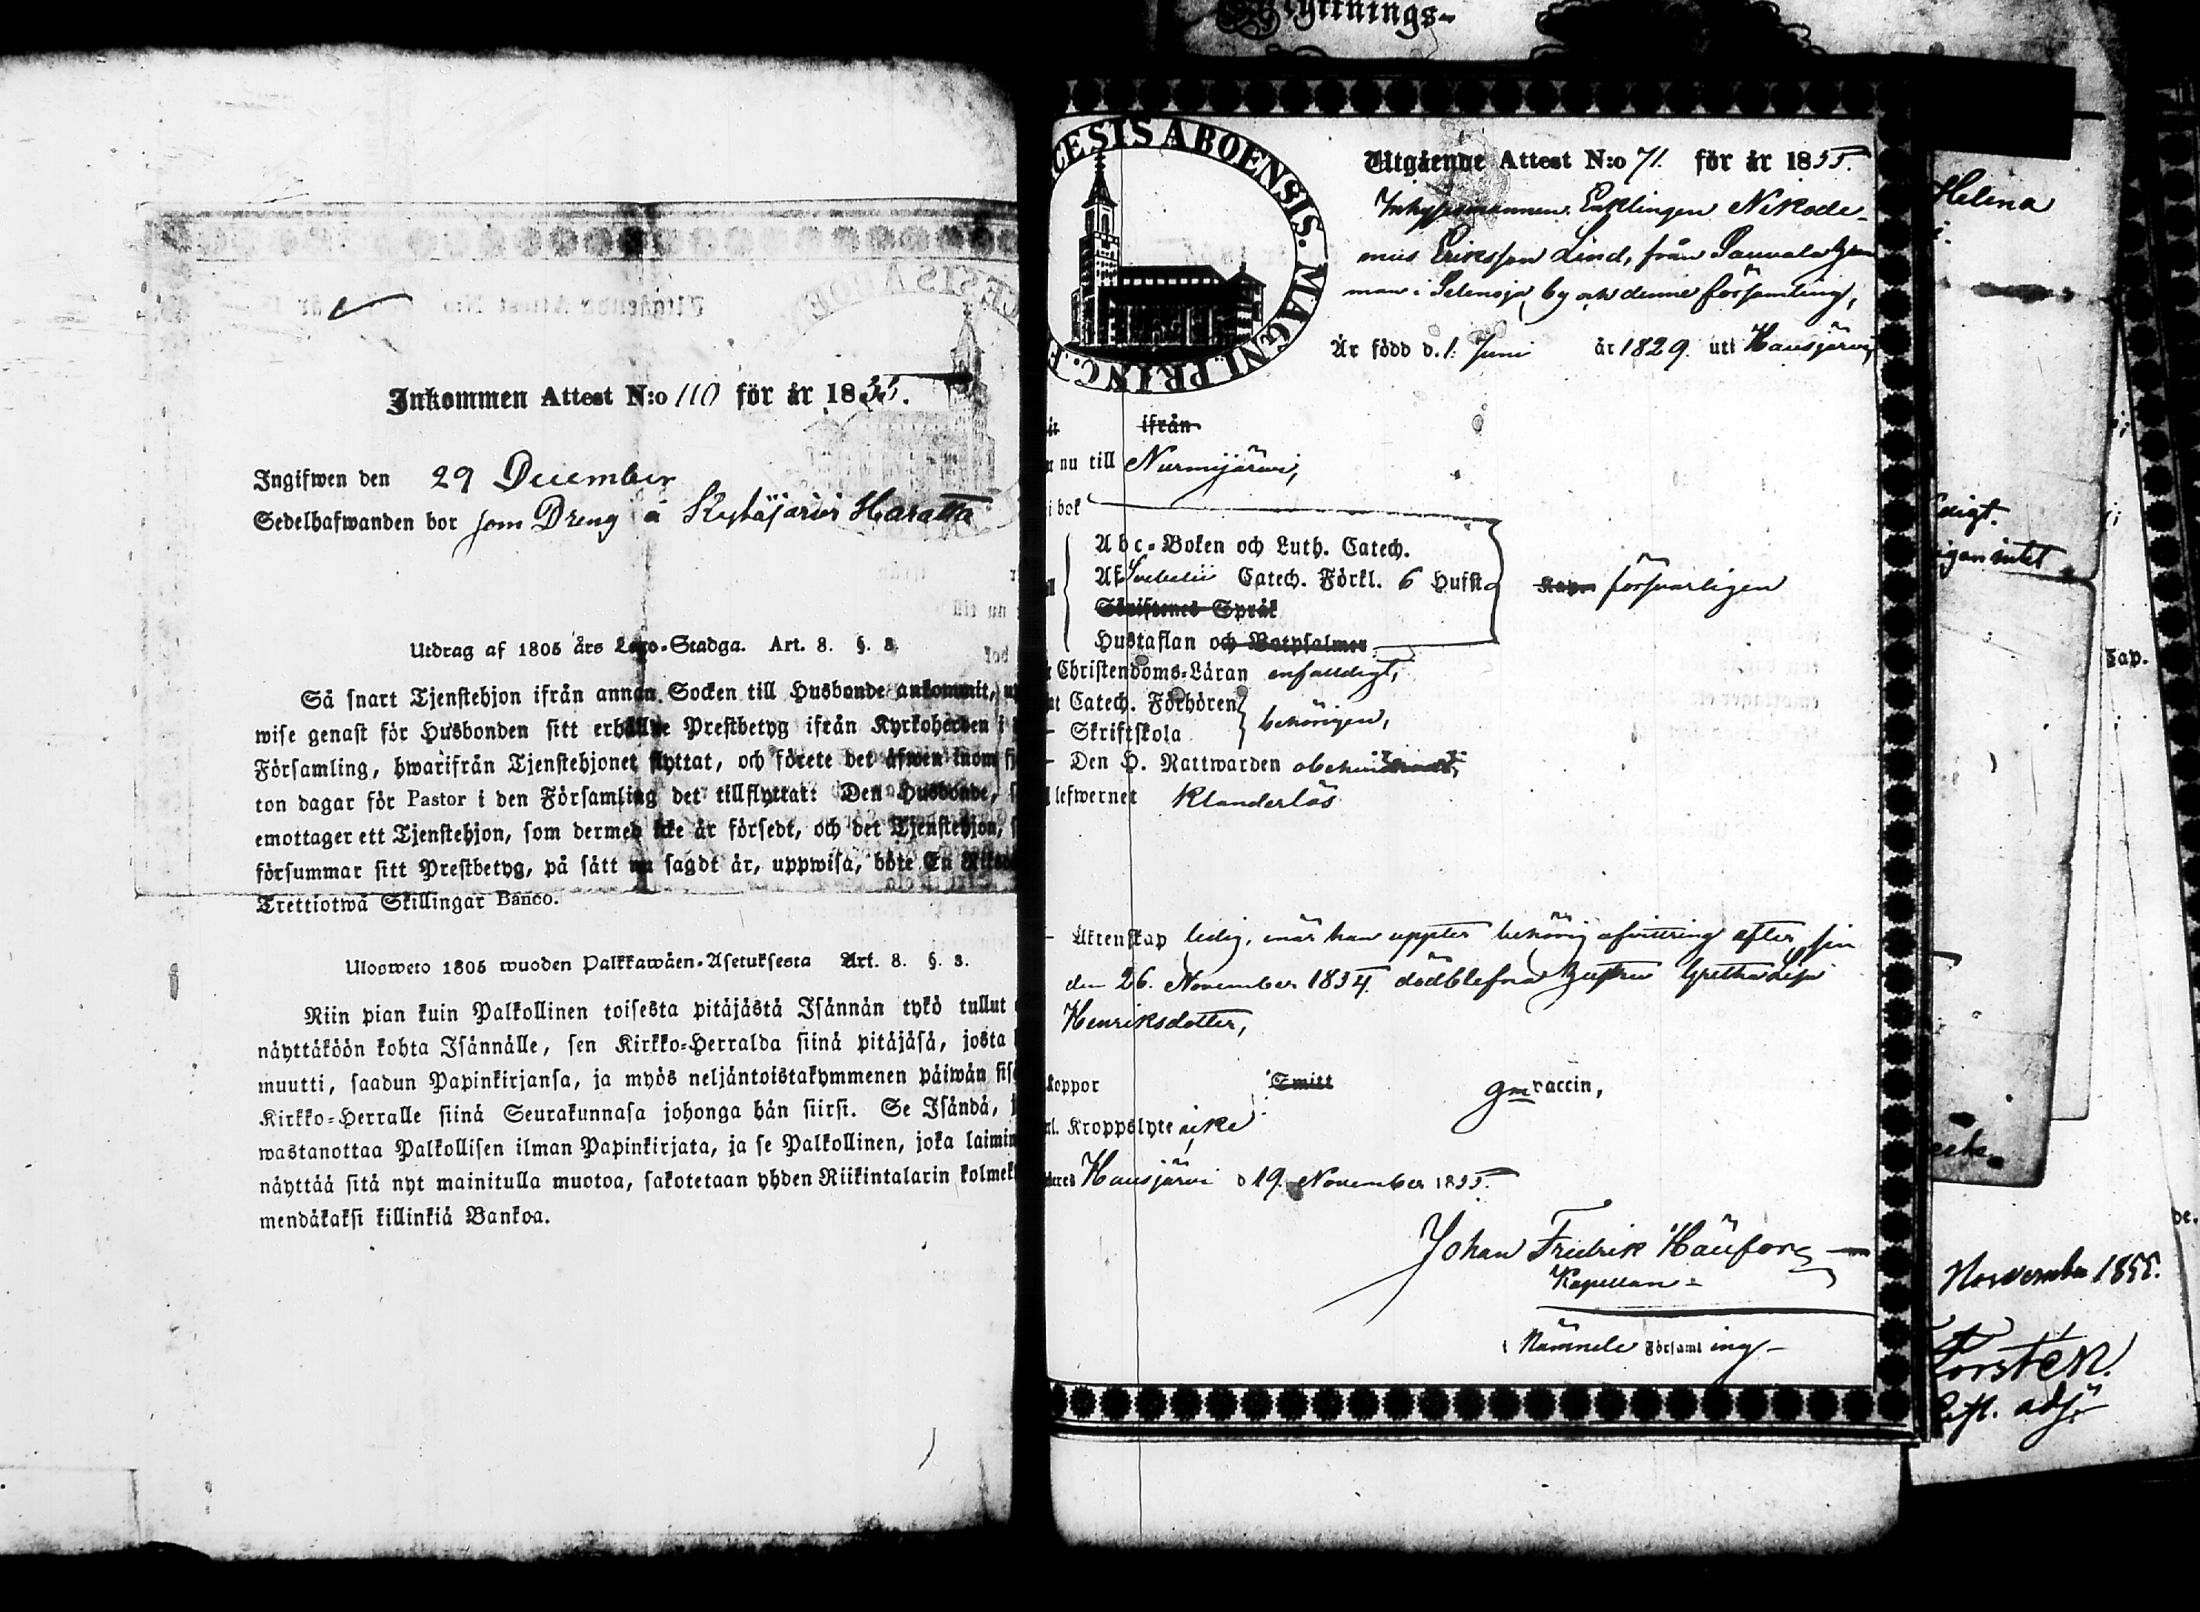 Inkommen Attest N:o 110 för år 1855.
Ingifwen den 29 December
Sedelhafwanden bor som Dreng å Kytäjärvi Haratta
Utdrag af 1805 års Lego-Stadga. Art. 8. §. 3.
Så snart Tjenstehjon ifrån annan Socken till Husbonde ankommit,
wise genast för Husbonden sitt erhållne Prestbetyg ifrån Kyrkoherden i
Församling, hwarifrån Tjenstehjonet flyttat, och förete det äfwen inom
ton dagar för Pastor i den Församling det tillflyttat: Den Husbonde,
emottager ett Tjenstehjon, som dermed icke är försedt, och det Tjenstehjon,
försummar sitt Prestbetyg, på sätt nu sagdt är, uppwisa, böte En
Trettiotwå Skillingar Banco.
Ulosweto 1805 wuoden Palkkawäen-Asetuksesta Art. 8. §. 3.
Niin pian kuin Palkollinen toisesta pitäjästä Isännän tykö tullut
näyttäköön kohta Isännälle, sen Kirkko-Herralda siinä pitäjäsä, josta
muutti, saadun Papinkirjansa, ja myös neljäntoistakymmenen päiwän
Kirkko-Herralle siinä Seurakunnasa johonga hän siirsi. Se Isändä,
wastanottaa Palkollisen ilman Papinkirjata, ja se Palkollinen, joka
näyttää sitä nyt mainitulla muotoa, sakotetaan yhden Riikintalarin
mendäkaksi killinkiä Bankoa.
Flyttnings-
CESIS ABOENSIS. MAGNI PRINC. F
Utgående Attest N:o 71. för år 1855.
Inhysesmannen Enklingen Nikode-
mus Eriksson Lind, från Sauvala
man i Selänoja by och denne församling,
Är född d. 1. Juni år 1829. uti Hausjärvi,
ifrån
nu till Nurmijärvi,
i bok
Abc-Boken och Luth. Catech.
Af Svebelii Catech. Förkl. 6 Hufst. försvarligen
Skriftenes Språk
Hustaflan och Botpsalmer
Christendoms-Läran enfaldigt,
Catech. Förhören
behörigen,
- Skriftskola
- Den H. Nattwarden obehindrad,
lefwernet Klanderlös
- Äktenskap ledig, när han uppter behörig afvittring efter sin
den 26. November 1854. dödblefna hustru Gretha Lisa
Henriksdotter,
koppor Smitt gm vaccin,
Kroppslyte icke
Hausjärvi d 19. November 1855.
Johan Fredrik Häufors
Kapellan
i Nämnde Församling
Helena
November 1855.
adj.